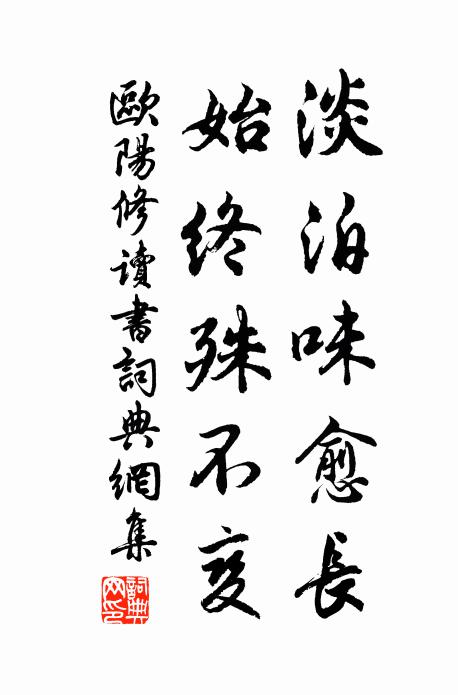 淡泊味愈長
始終殊不变
歐陽修讀書詞典網集
詞典